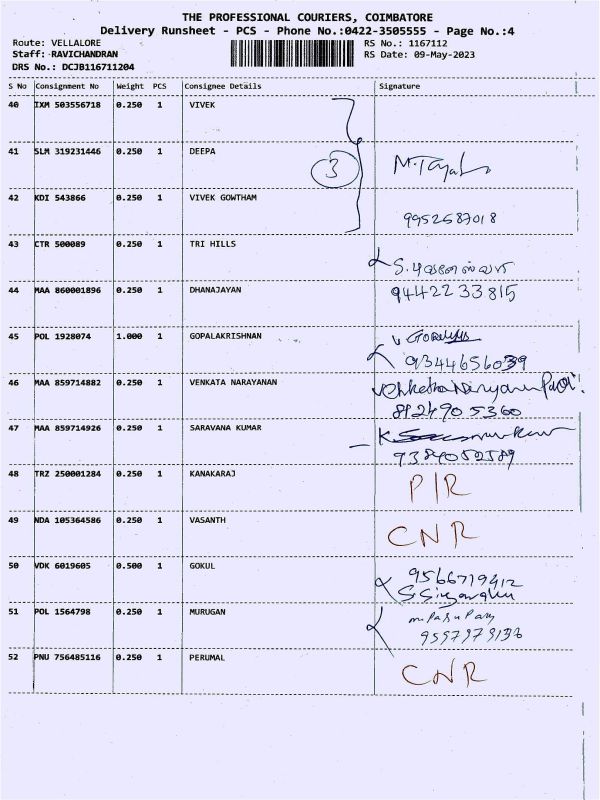 THE PROFESSIONAL COURIERS, COIMBATORE
Delivery Runsheet - PCS - Phone No.:0422-3505555 - Page No.:4
Route: VELLALORE RS No.: 1167112
Staff: RAVICHANDRAN RS Date: 09-May-2023
DRS No.: DCJB116711204
S No Consignment No Weight PCS Consignee Details Signature
40 IXM 503556718 0.250 1 VIVEK
41 SLM 319231446 0.250 1 DEEPA
3
42 KDI 543866 0.250 1 VIVEK GOWTHAM
9952587018
43 CTR 500089 0.250 1 TRI HILLS
44 MAA 860001896 0.250 1 DHANAJAYAN 9442233815
45 POL 1928074 1.000 1 GOPALAKRISHNAN
9344656039
46 MAA 859714882 0.250 1 VENKATA NARAYANAN
8124905360
47 MAA 859714926 0.250 1 SARAVANA KUMAR
9384052589
48 TRZ 250001284 0.250 1 KANAKARAJ P/R
49 NDA 105364586 0.250 1 VASANTH CNR
50 VDK 6019605 0.500 1 GOKUL 9566719412
51 POL 1564798 0.250 1 MURUGAN
52 PNU 756485116 0.250 1 PERUMAL CNR